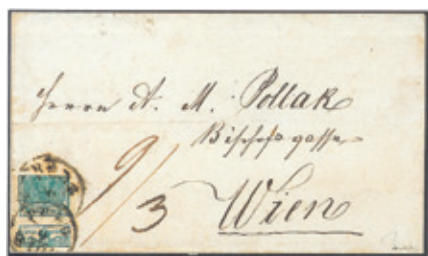 Herrn A. M. Pollak
Bischofsgasse
9/3
Wien